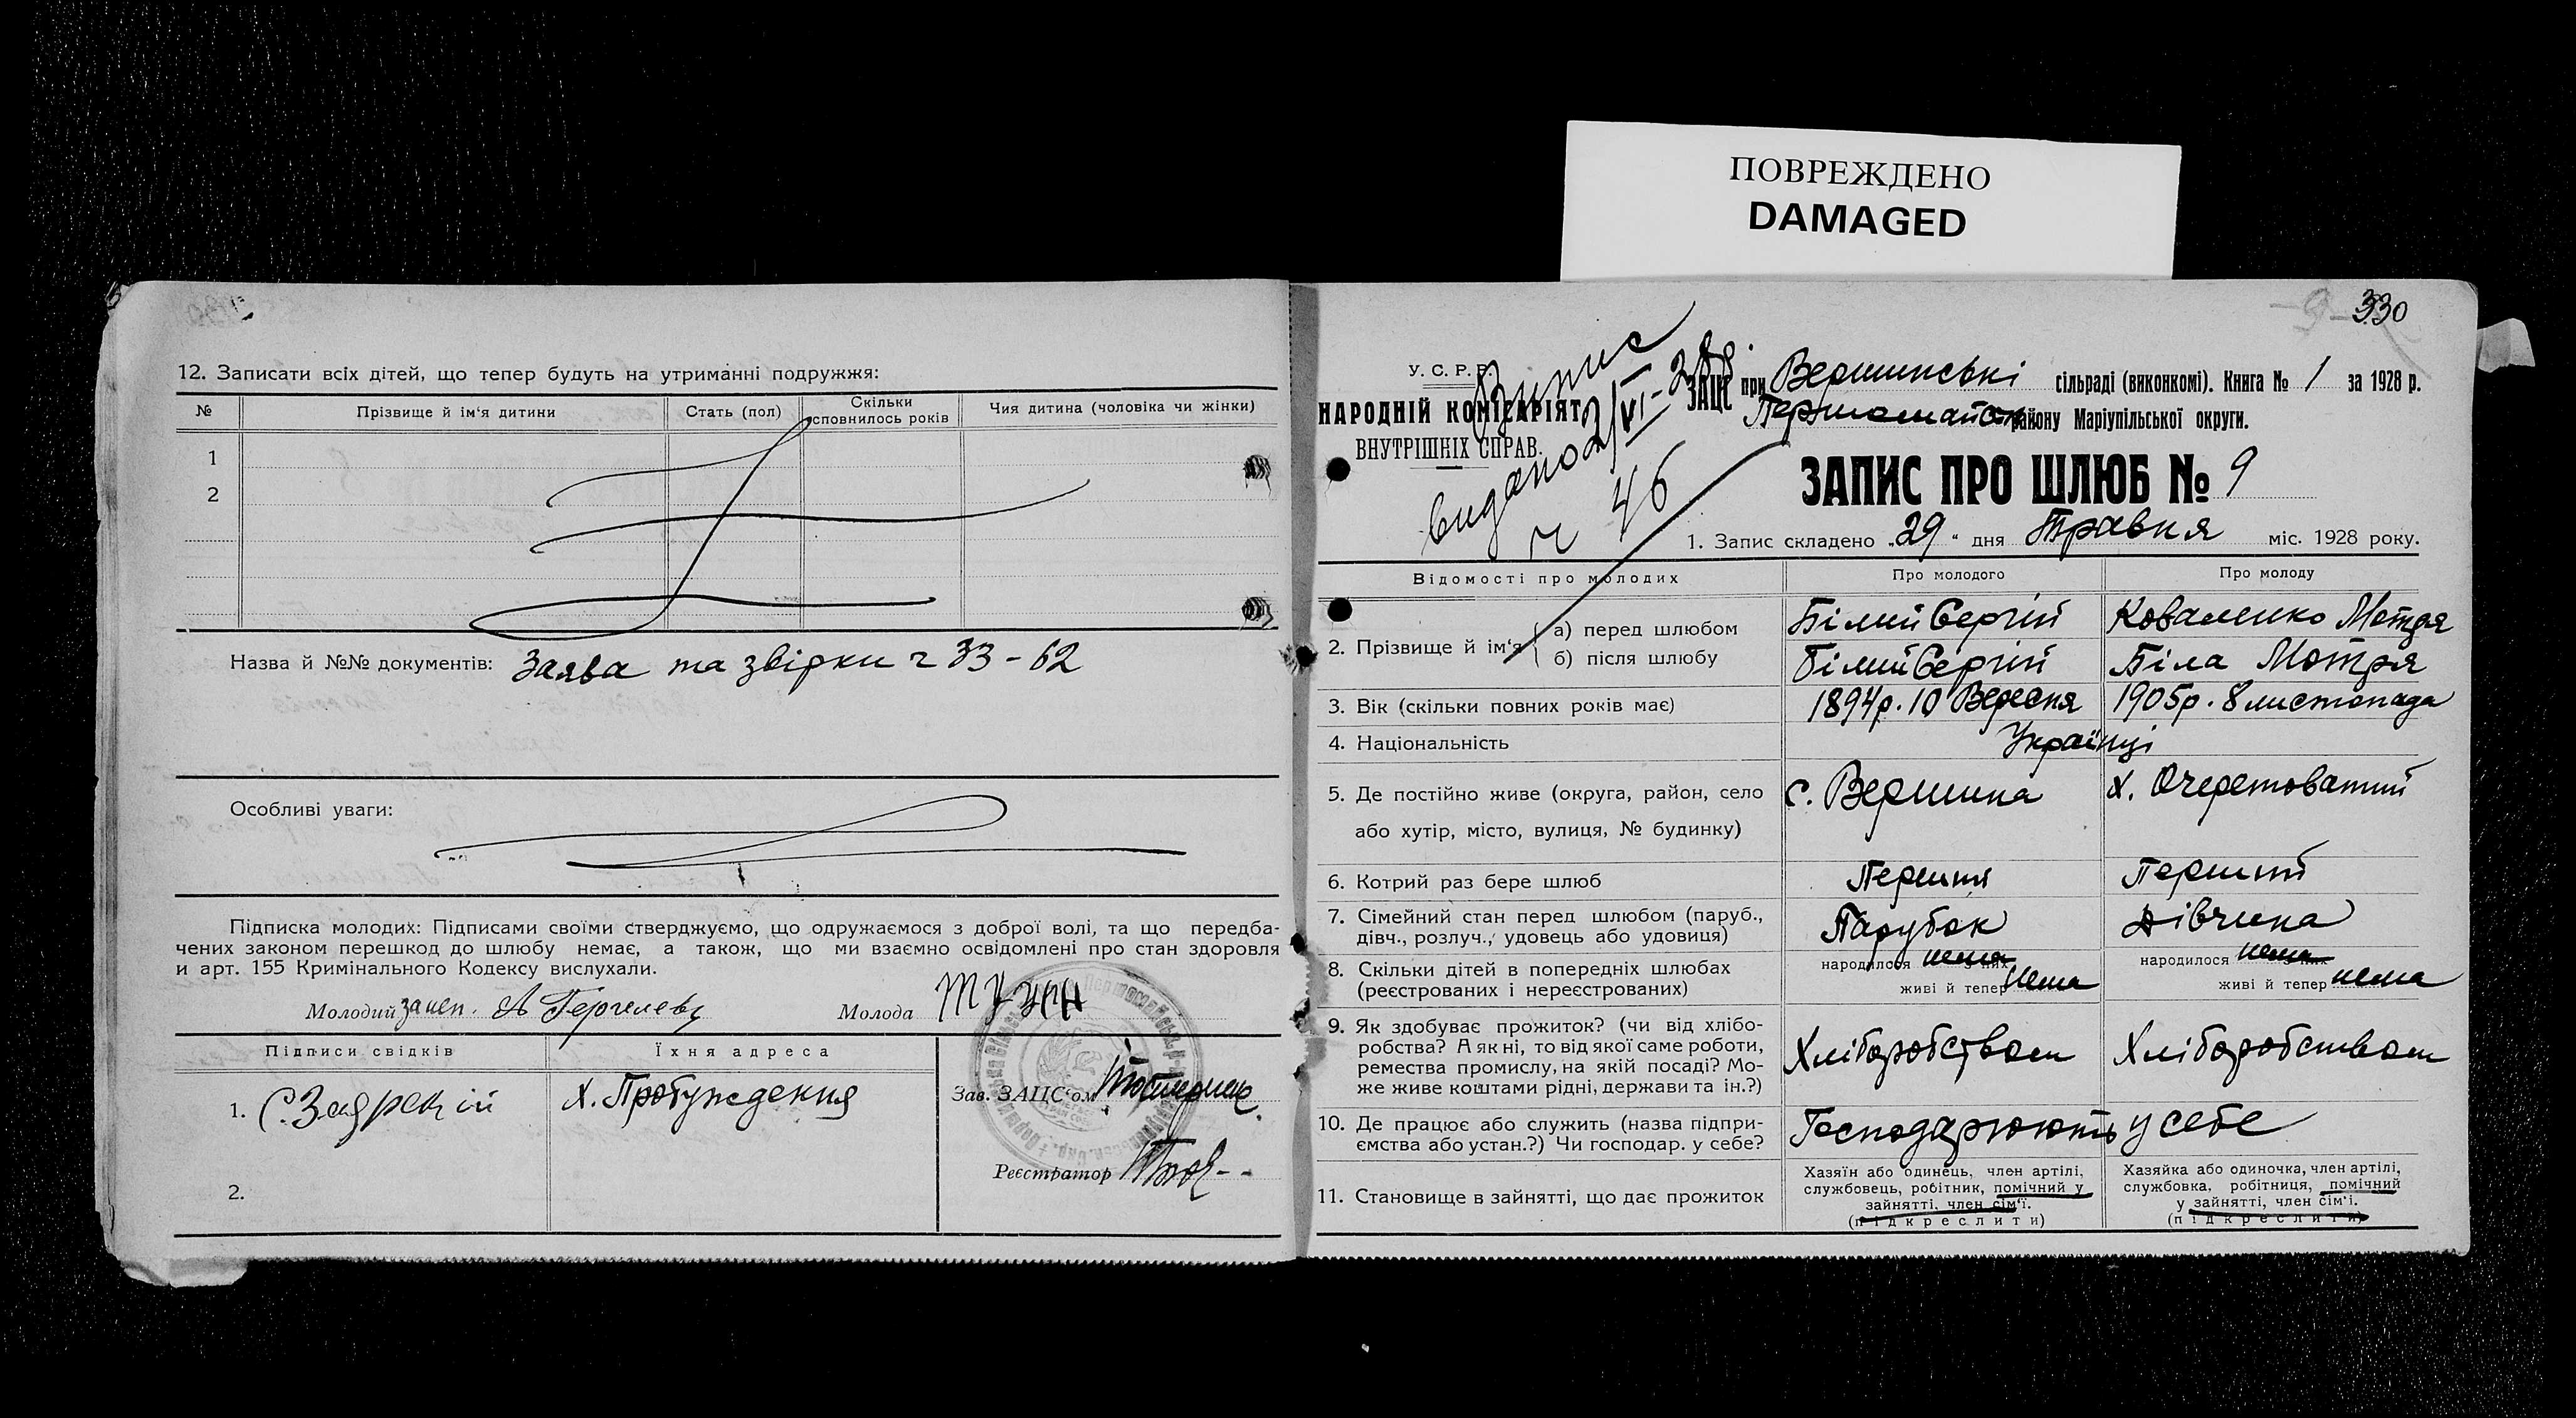 ПОВРЕЖДЕНО
DAMAGED
12. Записати всіх дітей, що тепер будуть на утриманні подружжя:
№ Прізвище й ім'я дитини Стать (пол) Скільки сповнилось років Чия дитина (чоловіка чи жінки)
1
2
Назва й №№ документів: Заява та звірки ч 33-62
Особливі уваги:
Підписка молодих: Підписами своїми стверджуємо, що одружаємося з доброї волі, та що передба-
чених законом перешкод до шлюбу немає, а також, що ми взаємно освідомлені про стан здоровля
и арт. 155 Кримінального Кодексу вислухали.
Молодий Молода
Підписи свідків Їхня адреса
1. С. Заярский х. Пробуждения
Зав. ЗАЦС'ом
Реєстратор
2.
330
У. С. Р. Р.
НАРОДНІЙ КОМІСАРІЯТ
ВНУТРІШНІХ СПРАВ.
Випис
видано 2/VI-28р.
ч 46
ЗАЦС при Вершинські сільраді (виконкомі). Книга № 1 за 1928 р.
Першомайськ району Маріупільської округи.
ЗАПИС ПРО ШЛЮБ № 9
1. Запис складено „29" дня Травня міс. 1928 року.
Відомості про молодих Про молодого Про молоду
2. Прізвище й ім'я
а) перед шлюбом Білий Сергій Коваленко Мотря
б) після шлюбу Білий Сергій Біла Мотря
3. Вік (скільки повних років має) 1894р. 10 Вересня 1905р. 8 листопада
4. Національність Українці
5. Де постійно живе (округа, район, село с. Вершина х. Очеретоватий
або хутір, місто, вулиця, № будинку)
6. Котрий раз бере шлюб Перший Перший
7. Сімейний стан перед шлюбом (паруб., Парубок Дівчина
дівч., розлуч., удовець або удовиця)
8. Скільки дітей в попередніх шлюбах народилося нема з них народилося нема з них
(реєстрованих і нереєстрованих) живі й тепер нема живі й тепер нема
9. Як здобуває прожиток? (чи від хлібо-
робства? А як ні, то від якої саме роботи, Хліборобством Хліборобством
ремества промислу, на якій посаді? Мо-
же живе коштами рідні, держави та ін.?)
10. Де працює або служить (назва підпри- Господарюють у себе
ємства або устан.?) Чи господар. у себе?
11. Становище в зайнятті, що дає прожиток
Хазяїн або одинець, член артілі,
службовець, робітник, помічний у
зайнятті, член сім'ї.
(підкреслити)
Хазяйка або одиночка, член артілі,
службовка, робітниця, помічний
у зайнятті, член сім'ї.
(підкреслити)